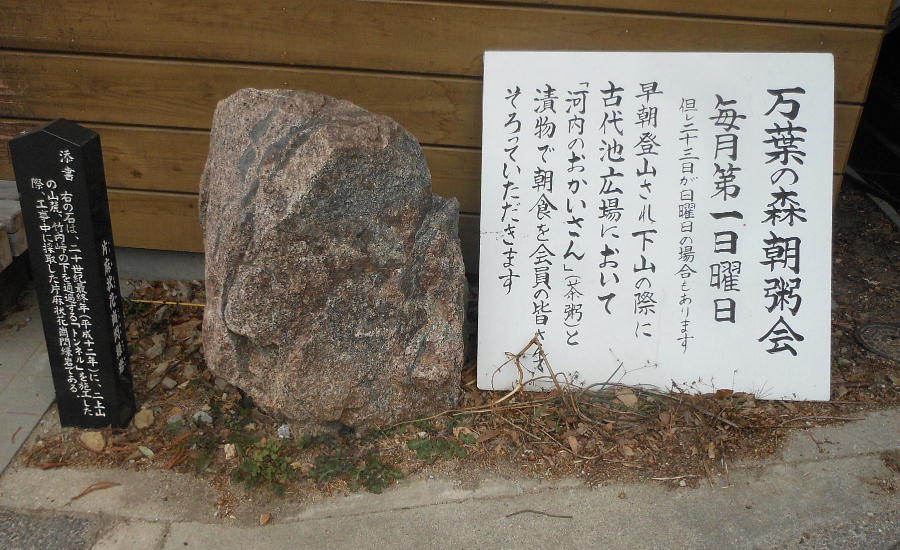 万葉の森朝粥会
毎月第一日曜日
但し二十三日が日曜日の場合もあります
早朝登山され下山の際に
古代池広場において
「河内のおかいさん」(茶粥)と
漬物で朝食を会員の皆さま
そろっていただきます
片麻状花崗閃緑岩
添書 右の石は、二十世紀最終年(平成十二年)に、二上山
の山麓、竹内峠の下を通過する「トンネル」を施工した
際、工事中に採取した片麻状花崗閃緑岩である。